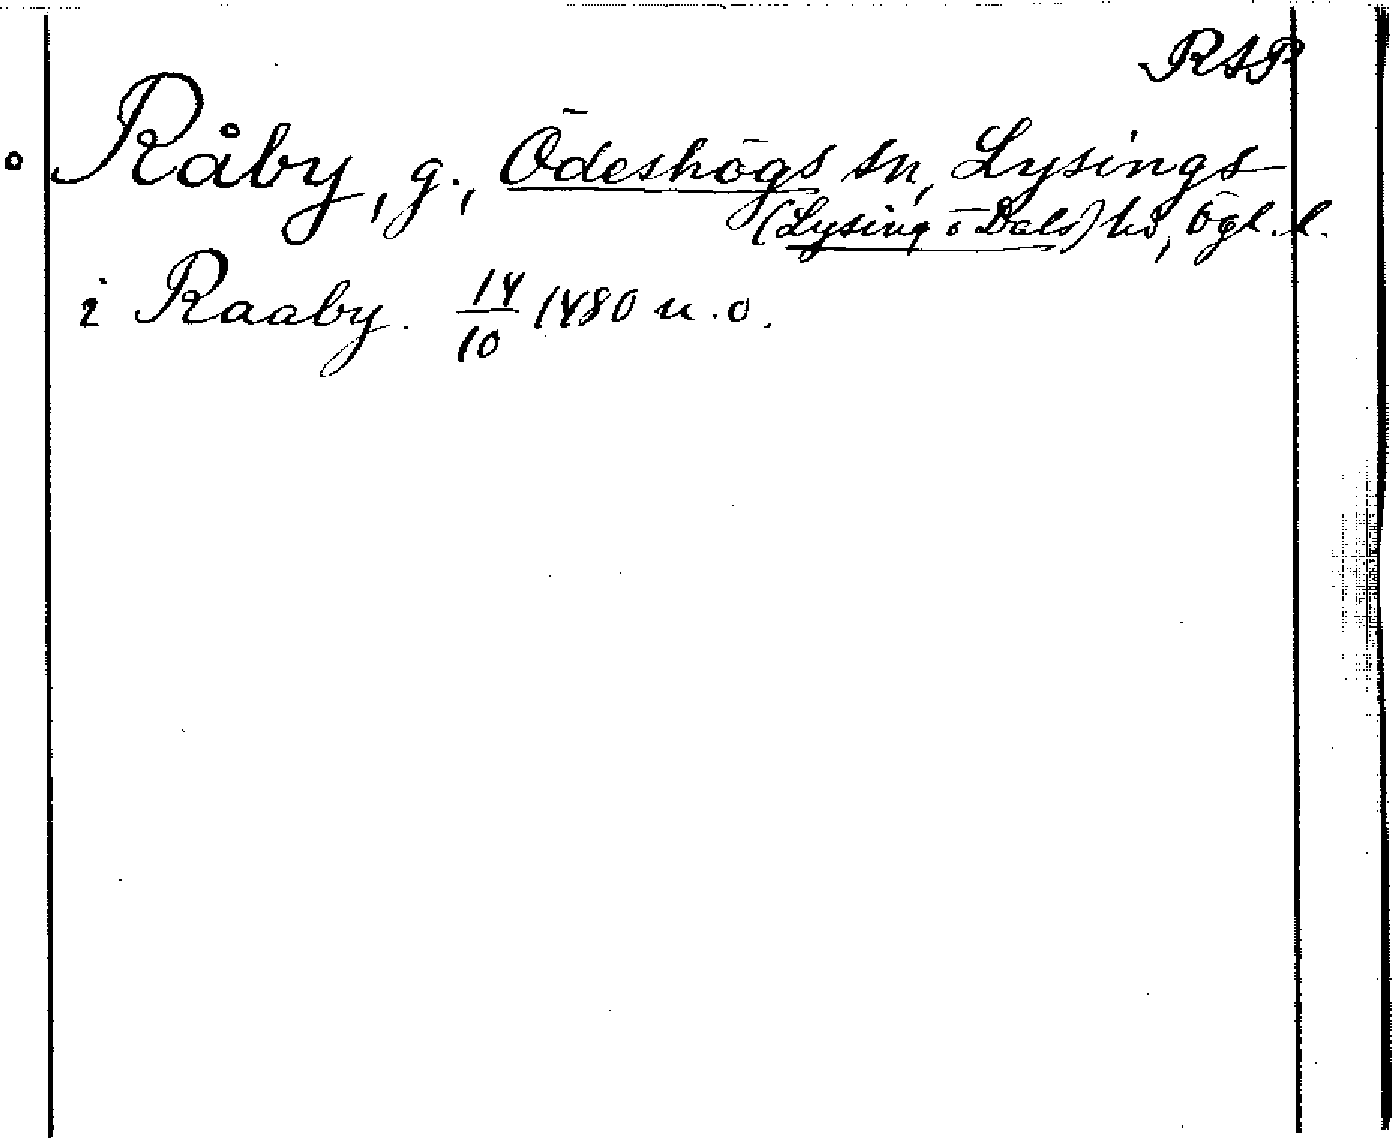 RAP
Råby, g., Ödeshögs sn, Lysings
(Lysing o Dals) hd, Ögl. l.
i Raaby. 14/10 1480 u. o.